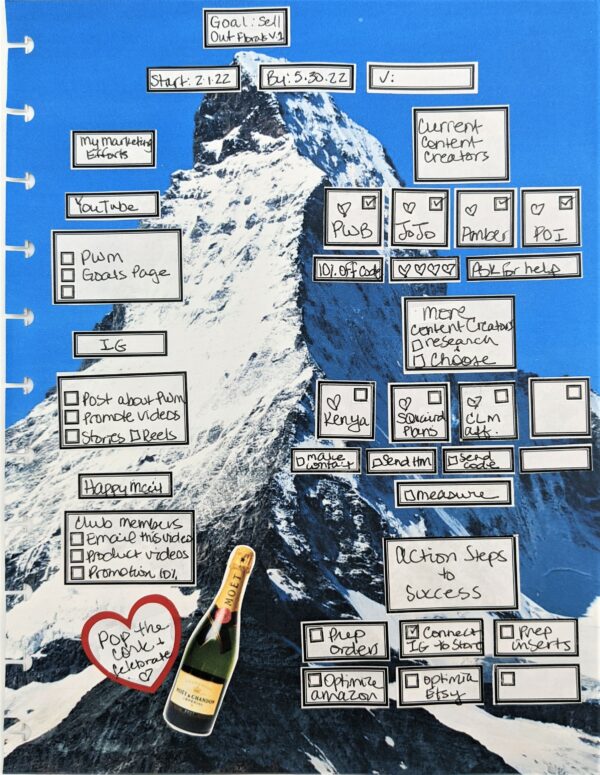 Goal: Sell
Out Florals V.1
Start: 2.1.22
By: 5.30.22
V:
My Marketing
Efforts
YouTube
PWM
Goals Page
IG
Post about PWM
Promote videos
Stories Reels
Club members
Email this video
Product videos
Promotion 10%
Pop the
cork +
celebrate
MOËT
MOËT & CHANDON
Current
Content
Creators
PWB
JoJo
Amber
POI
10% Off Code
Ask for help
More
Content Creators
research
+
Choose
Kenya
Squaird
Plans
CLM
aff.
make
contact
Send Hm
Send
Code
measure
Action Steps
to
Success
Prep
orders
Connect
IG to Store
Prep
inserts
Optimize
amazon
Optimia
Etsy